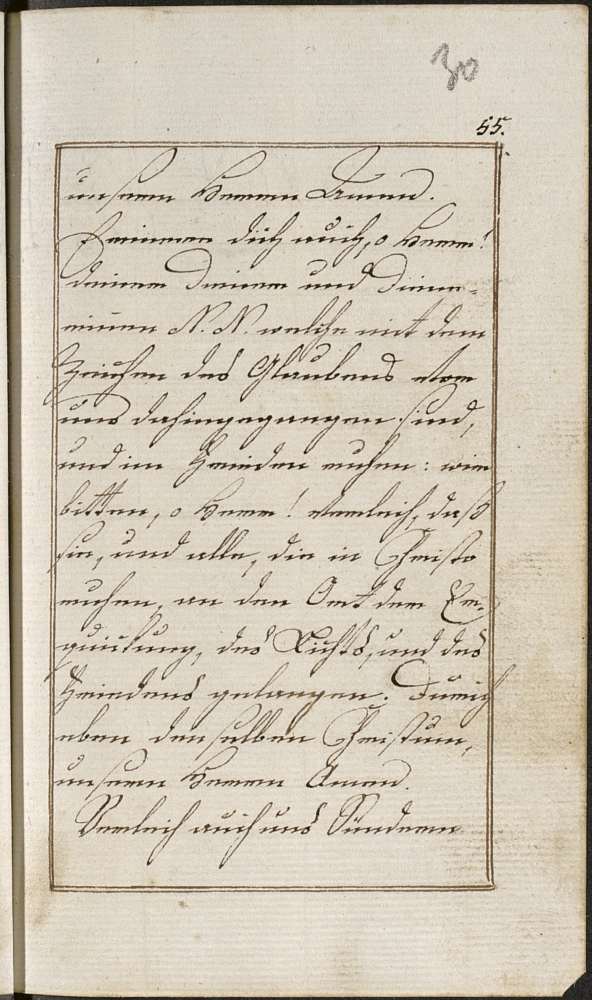 30
55.
unsern Herren Amen.
Erinnere dich auch, o Herre!
deiner Diener und Diene-
rinnen N. N. welche mit dem
Zeichen des Glaubens vor
uns dahingegangen sind,
und im Frieden ruhen: wir
bitten, o Herr! verleih, daß
sie, und alle, die in Christo
ruhen, an den Ort der Er-
quickung, des Lichts, und des
Friedens gelangen. Durch
eben denselben Christum,
unsern Herren Amen.
Verleih auch uns Sündern